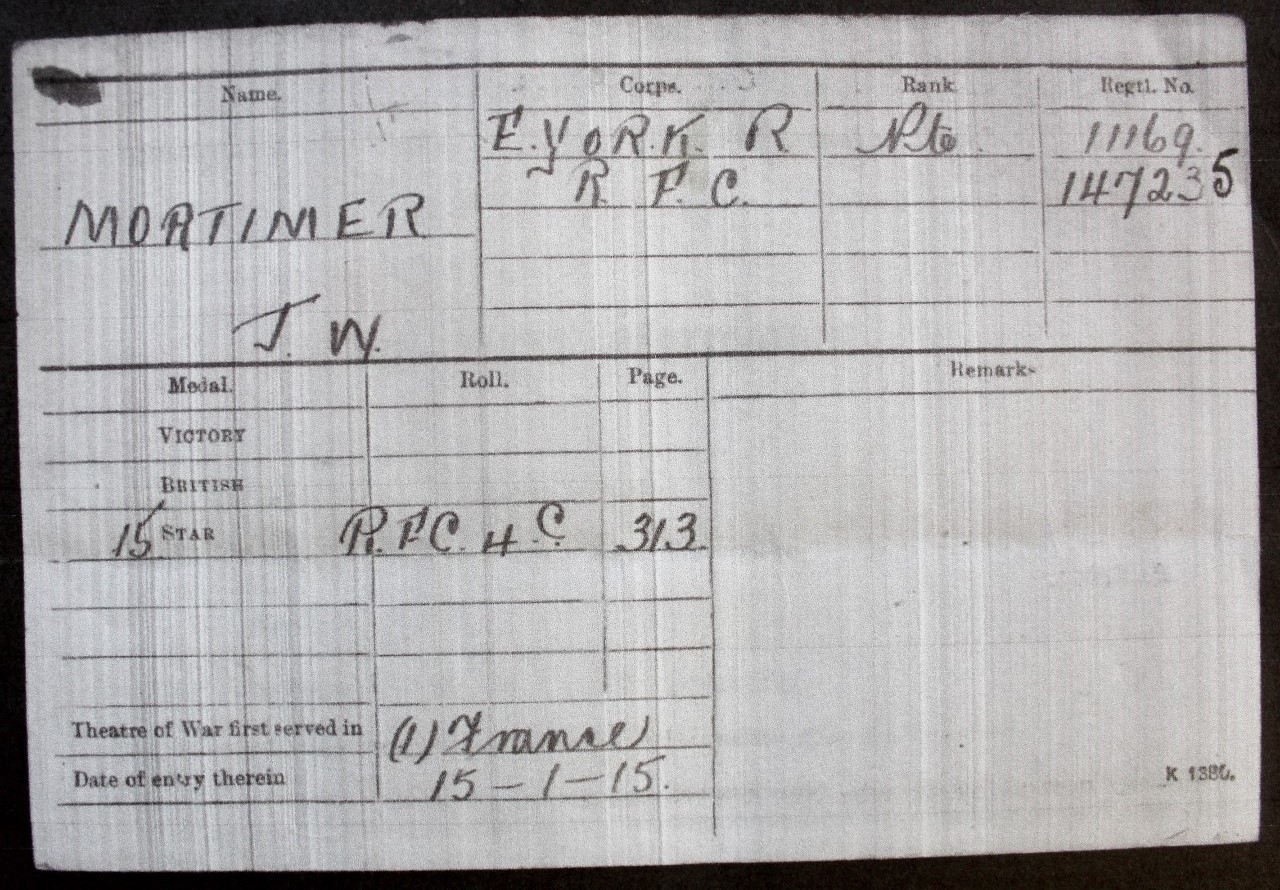 Name. Corps. Rank Regtl. No.
E. YORK. R Pte 11169.
R. F. C. 147235
MORTIMER
J. W.
Medal. Roll. Page. Remarks
VICTORY
BRITISH
15 STAR R.F.C. 4 C. 313.
Theatre of War first served in (1) France
Date of entry therein 15-1-15.
K 1380.